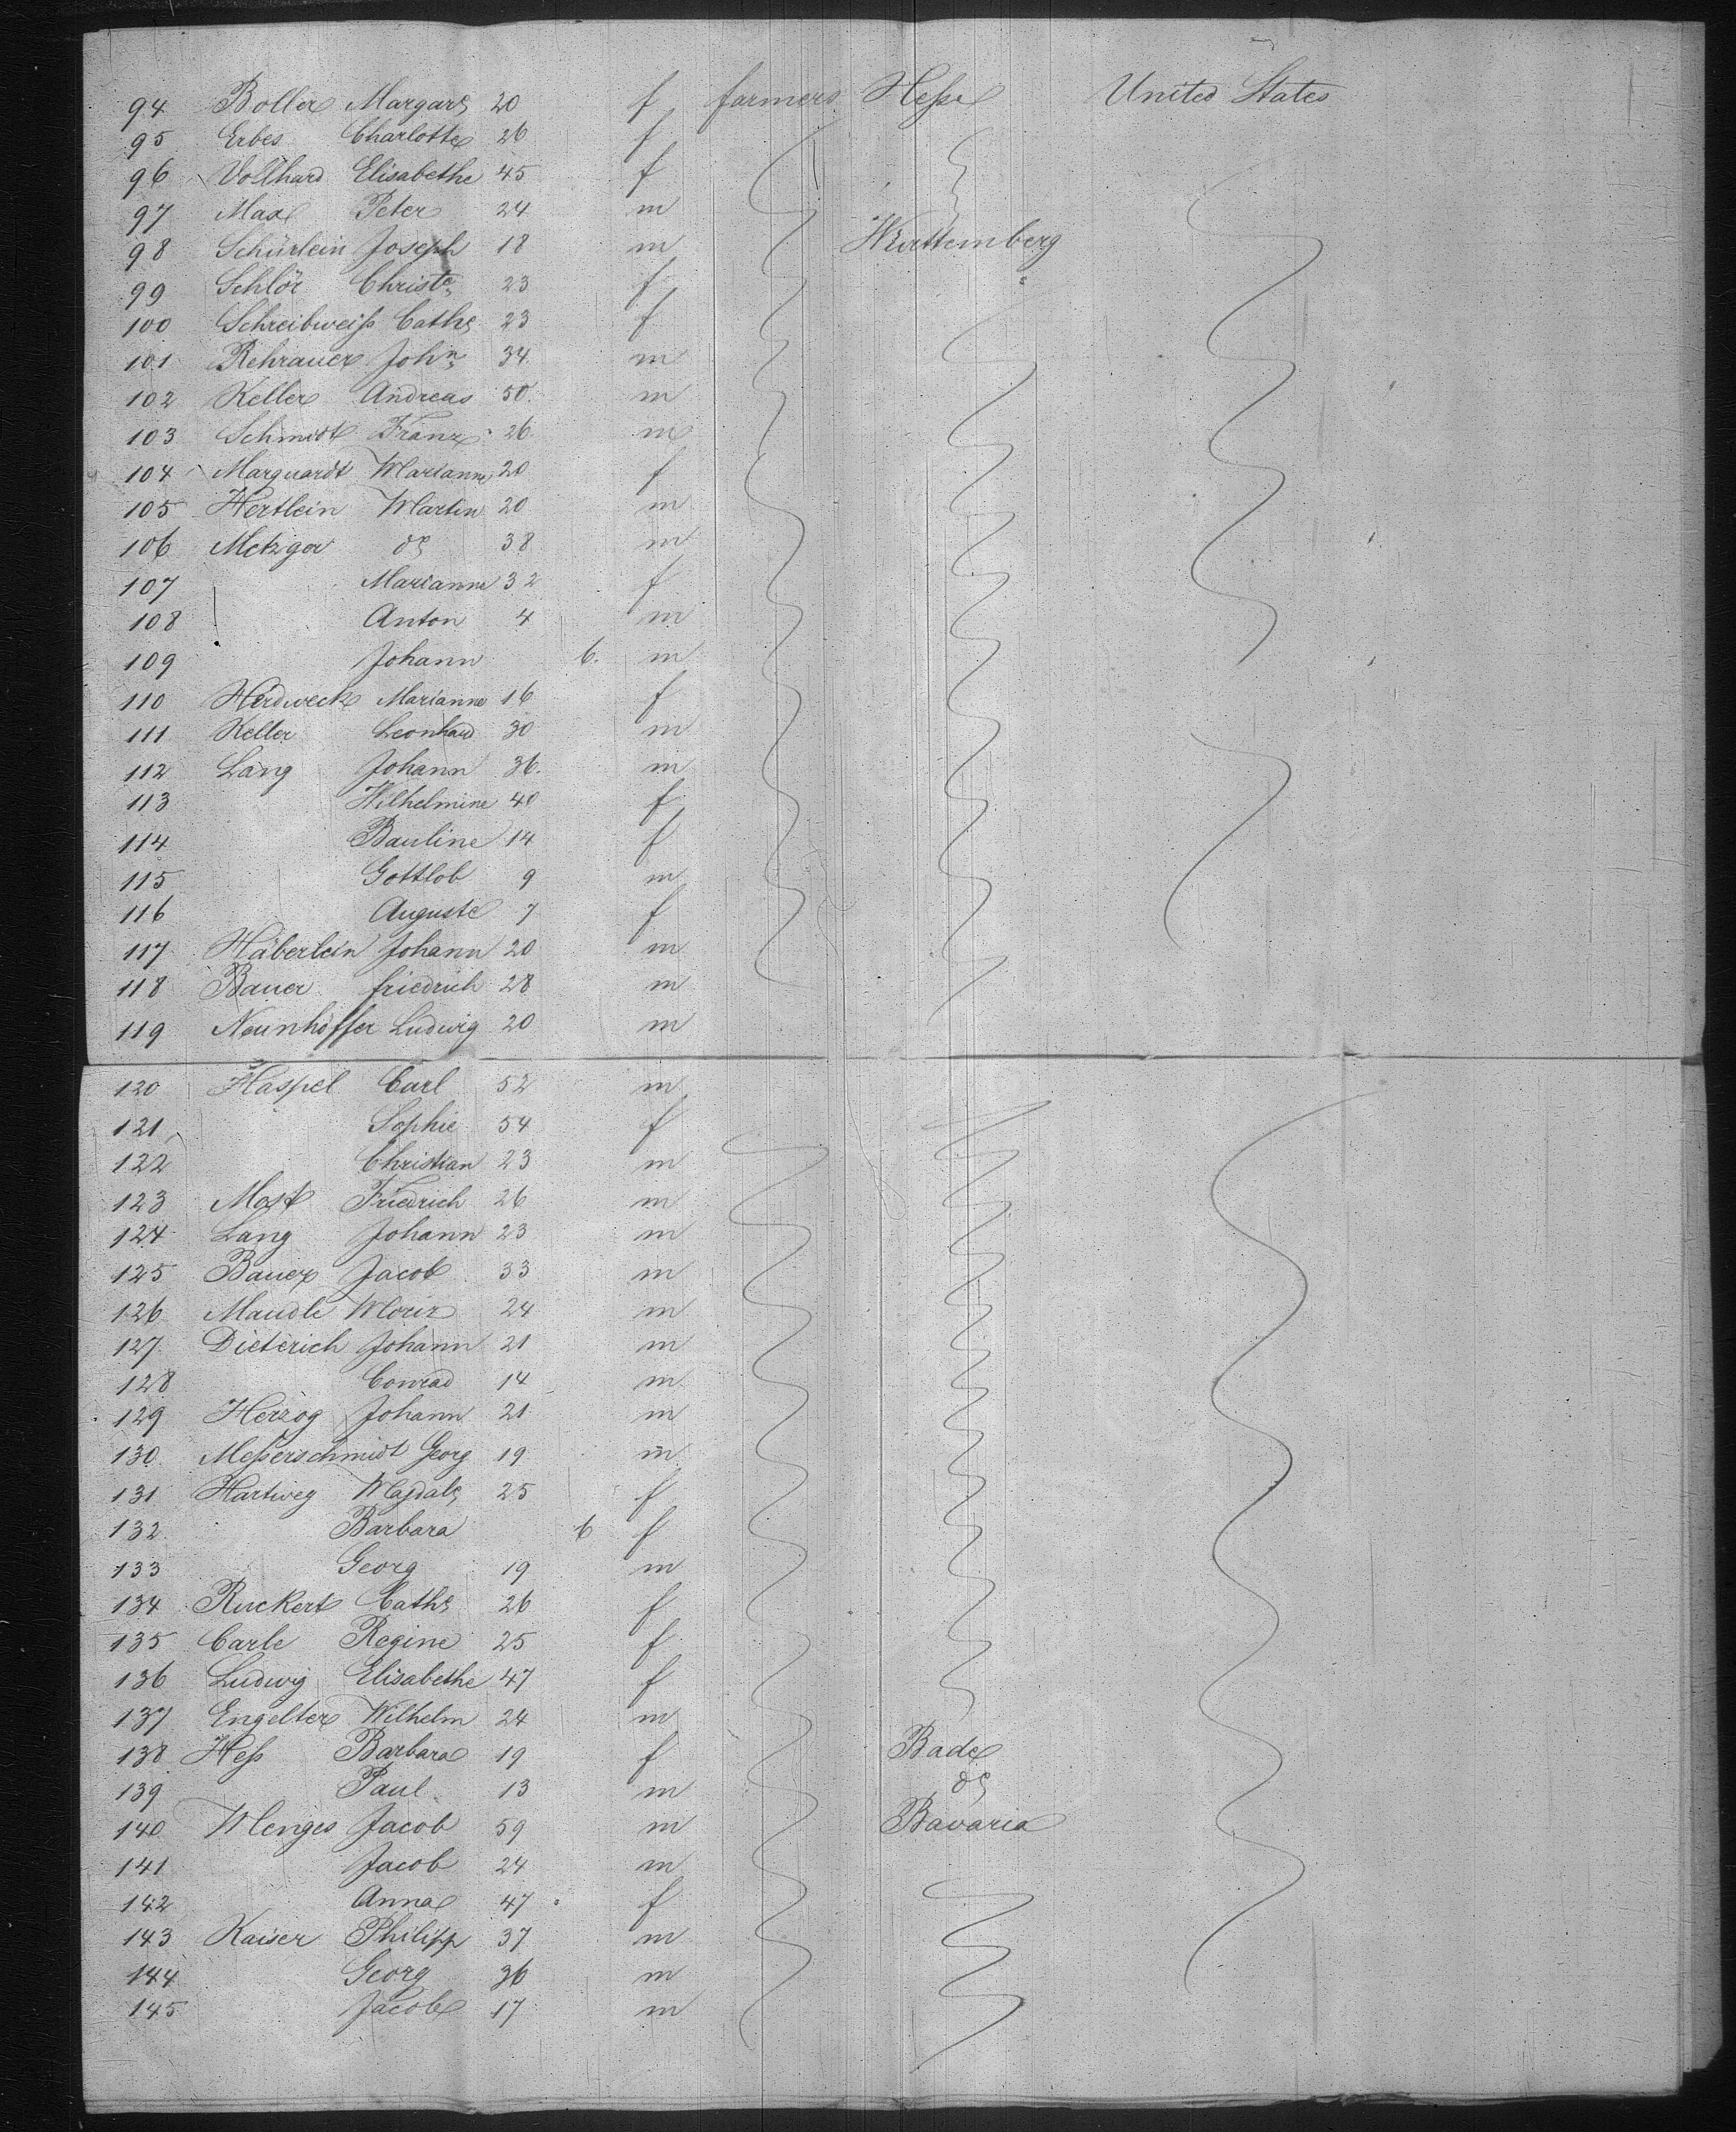 94 Boller Margarȝ 20 f farmers Heſse United States
95 Erbes Charlotte 26 f
96 Vollhard Elisabethe 45 f
97 Max Peter 24 m
98 Schürlein Joseph 18 m Wurttemberg
99 Schlör Christe 23 f
100 Schreibweiſs Cathȝ 23 f
101 Rehrauer Johⁿ 34 m
102 Keller Andreas 50 m
103 Schmidt Franz 26 m
104 Marquardt Marianne 20 f
105 Hertlein Martin 20 m
106 Metzger dȝ 38 m
107 Marianne 32 f
108 Anton 4 m
109 Johann 6. m
110 Herdweck Marianne 16 f
111 Keller Leonhard 30 m
112 Lang Johann 36. m
113 Wilhelmine 40 f
114 Bauline 14 f
115 Gottlob 9 m
116 Auguste 7 f
117 Häberlein Johann 20 m
118 Bauer friedrich 28 m
119 Neunhöffer Ludwig 20 m
120 Haspel Carl 52 m
121 Sophie 54 f
122 Christian 23 m
123 Mast Friedrich 26 m
124 Lang Johann 23 m
125 Bauer Jacob 33 m
126 Maudle Moriz 24 m
127 Dieterich Johann 21 m
128 Conrad 14 m
129 Herzog Johann 21 m
130 Meſserschmidt Georg 19 m
131 Hartweg Magdalȝ 25 f
132 Barbara 6 f
133 Georg 19 m
134 Ruckert Cathȝ 26 f
135 Carle Regine 25 f
136 Ludwig Elisabethe 47 f
137 Engelter Wilhelm 24 m
138 Heſs Barbara 19 f Bade
139 Paul 13 m dȝ
140 Menges Jacob 59 m Bavaria
141 Jacob 24 m
142 Anna 47 f
143 Kaiser Philipp 37 m
144 Georg 36 m
145 Jacob 17 m